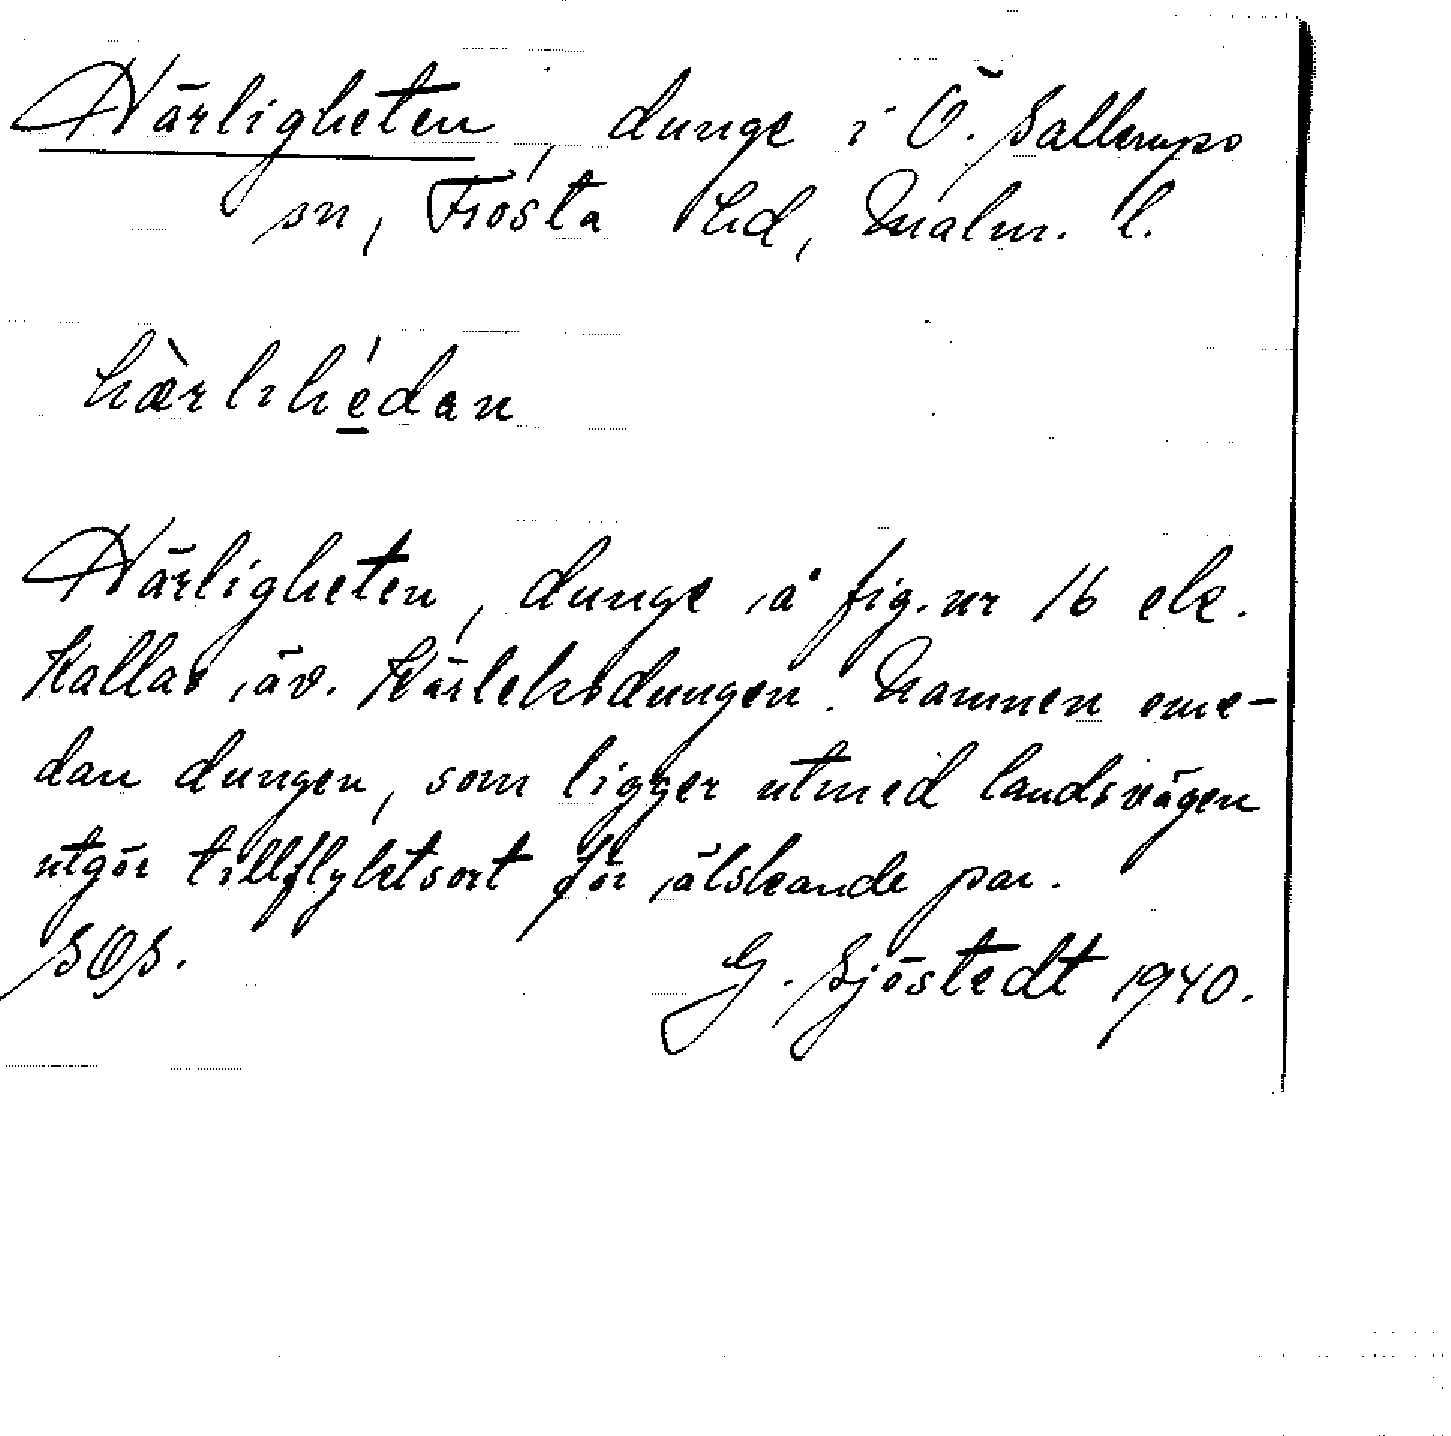 Härligheten, dunge i Ö. Sallerups
sn, Frosta hd, Malm. l.
hæ̀rlihé̱dan
Härligheten, dunge å fig. nr 16 ek.
Kallas äv. Kärleksdungen. Namnen eme-
dan dungen, som ligger utmed landsvägen
utgör tillflyktsort för älskande par.
SOS. G. Sjöstedt 1940.